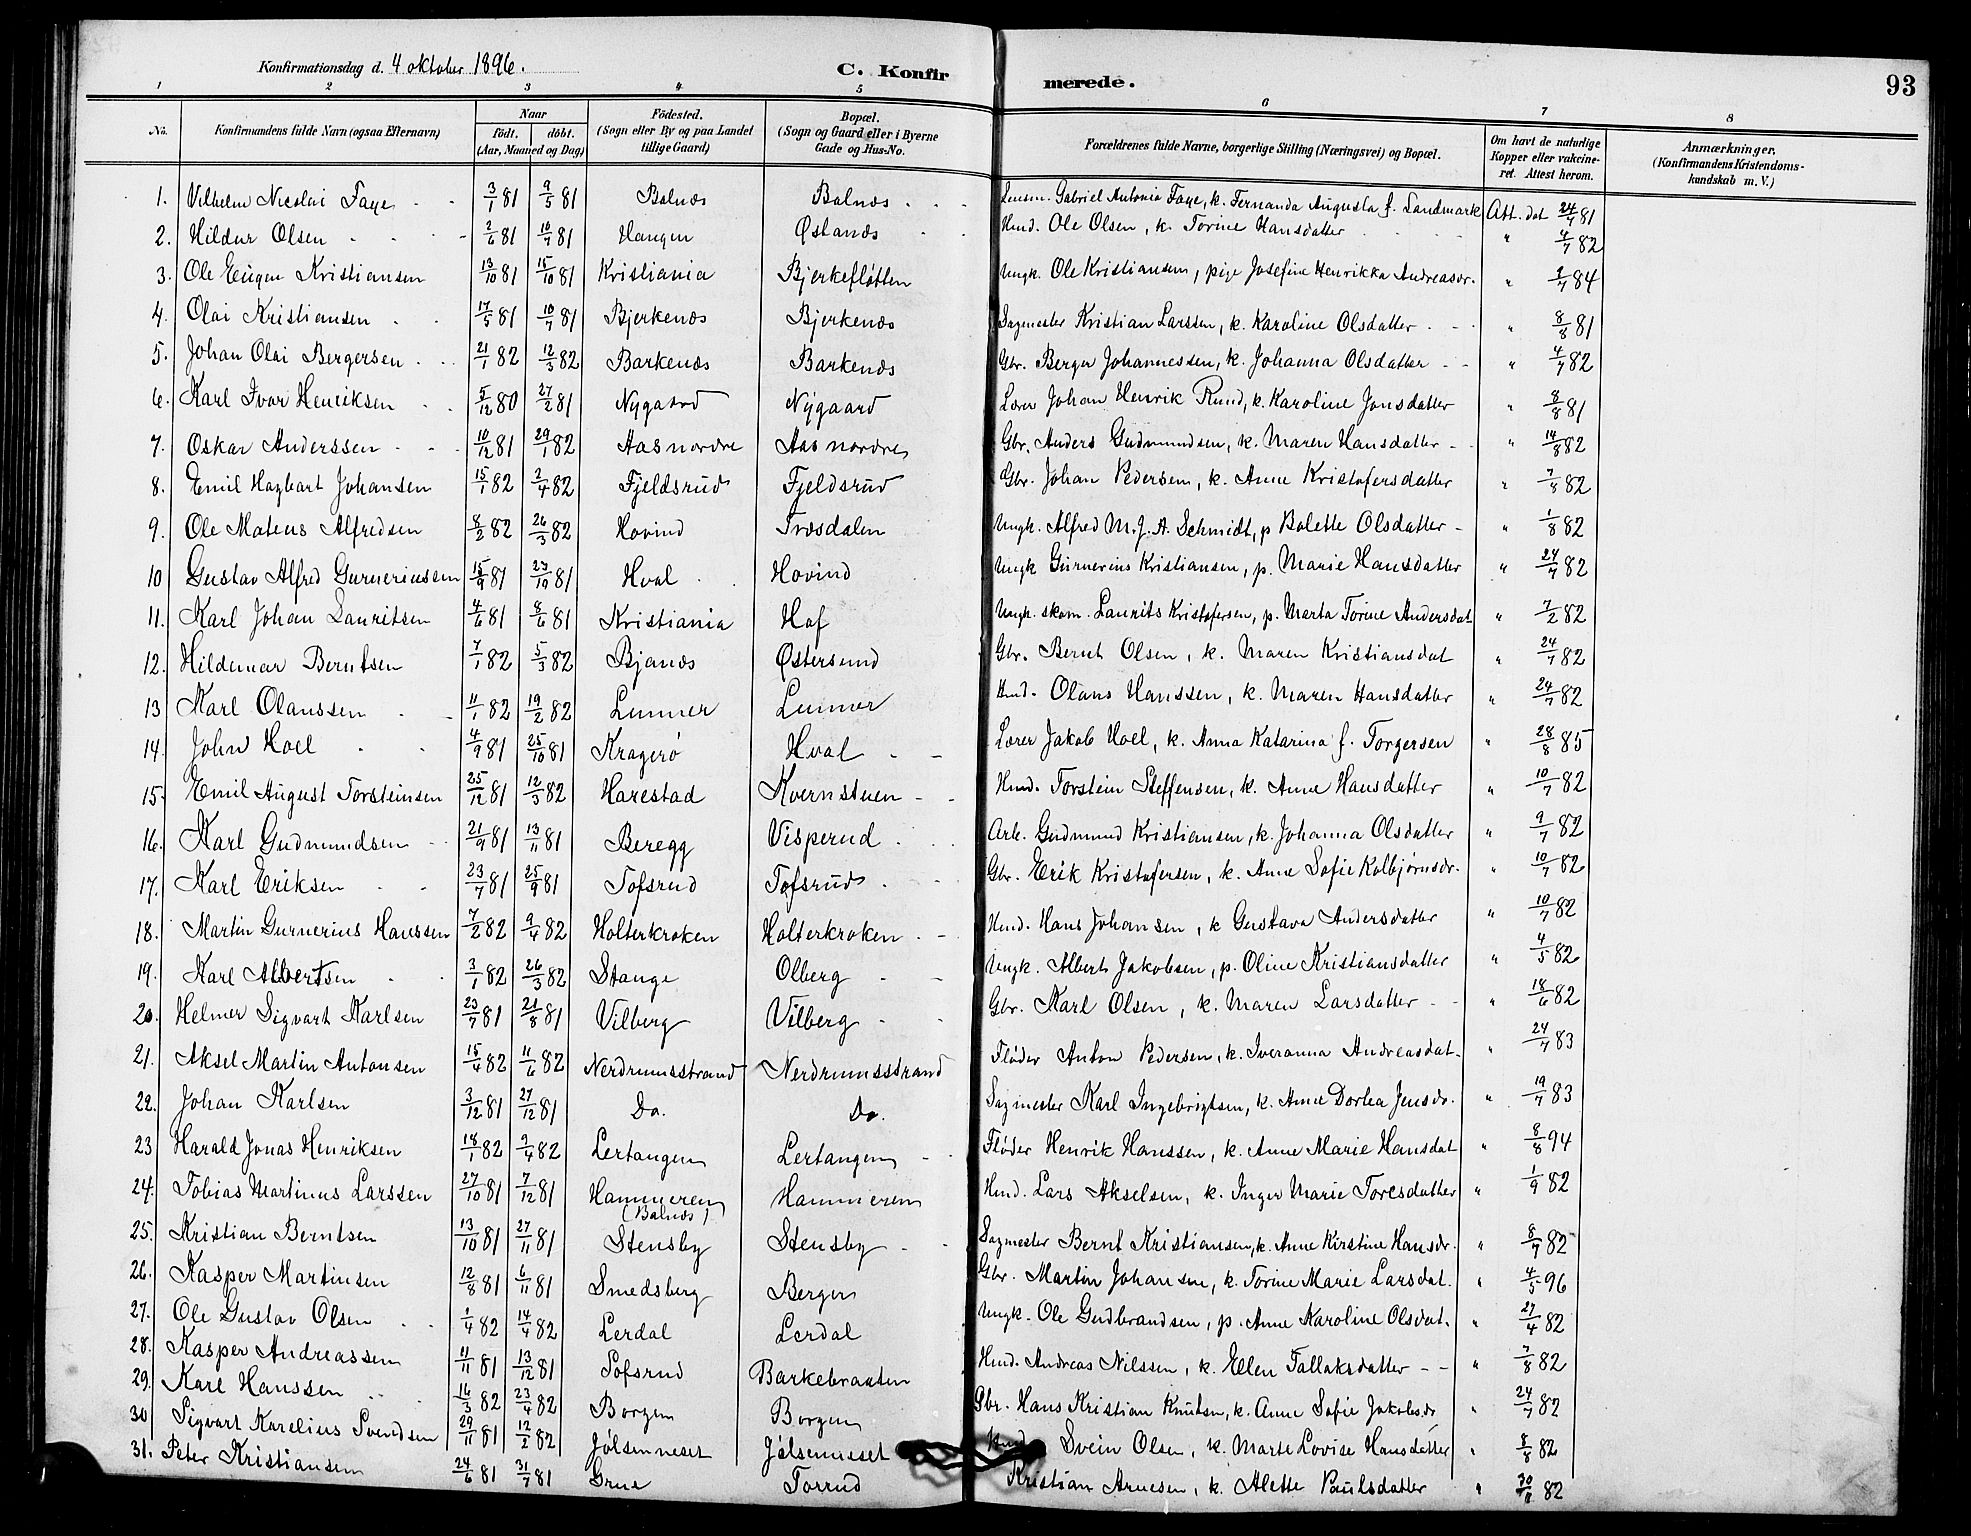 Konfirmationsdag d. 4 oktober 1896.
C. Konfirmerede.
93
1 2 3 4 5 6 7 8
No. Konfirmandens fulde Navn (ogsaa Efternavn) Naar født. døbt. (Aar, Maaned og Dag) Fødested. (Sogn eller By og paa Landet tillige Gaard) Bopæl. (Sogn og Gaard eller i Byerne Gade og Hus-No. Forældrenes fulde Navne, borgerlige Stilling (Næringsvei) og Bopæl. Om havt de naturlige Kopper eller vakcineret. Attest herom. Anmærkninger. (Konfirmandens Kristendomskundskab m. V.)
1. Vilhelm Nicolai Faye 3/1 81 9/5 81 Balnæs Balnæs Lensm. Gabriel Antonio Faye, k. Fernanda Augusta f. Landmark Att. dat 24/7 81
2. Hildur Olsen 2/6 81 10/7 81 Haugen Øslands Hmd. Ole Olsen, k. Torine Hansdatter " 4/7 82
3. Ole Eugen Kristiansen 13/10 81 15/10 81 Kristiania Bjerkefløtten Ungk. Ole Kristiansen, pige Josefine Henrikka Andreasdr. " 2/7 84
4. Olai Kristiansen 17/5 81 10/7 81 Bjerkenæs Bjerkenæs Sagmester Kristian Larssen, k. Karoline Olsdatter " 8/8 81
5. Johan Olai Bergersen 21/1 82 12/3 82 Barkenæs Barkenæs Gbr. Berger Johannessen, k. Johanna Olsdatter " 4/7 82
6. Karl Ivar Henriksen 5/12 80 27/2 81 Nygaard Nygaard Lærer Johan Henrik Rund, k. Karoline Jonsdatter " 8/8 81
7. Oskar Anderssen 10/12 81 29/1 82 Aas nordre Aas nordre Gbr. Anders Gudmundsen, k. Maren Hansdatter " 14/8 82
8. Emil Hagbart Johansen 15/1 82 2/4 82 Fjeldsrud Fjeldsrud Gbr. Johan Pedersen, k. Anne Kristofersdatter " 7/8 82
9. Ole Mateus Alfredsen 8/2 82 26/3 82 Hovind Træsdalen Ungk. Alfred M. J. A. Schmidt, p Bolette Olsdatter " 1/8 82
10 Gustav Alfred Gurneriussen 15/9 81 23/10 81 Hval Hovind Ungk Gurnerius Kristiansen, p. Marie Hansdatter " 24/7 82
11. Karl Johan Lauritsen 4/6 81 8/6 81 Kristiania Hof Ungk. skom. Laurits Kristofersen, p. Marta Torine Andersdat " 7/2 82
12. Hildemar Berntsen 7/1 82 5/3 82 Bjanæs Østersund Gbr. Bernt Olsen, k. Maren Kristiansdat " 24/7 82
13 Karl Olaussen 11/1 82 19/2 82 Lunner Lunner Hmd. Olaus Hanssen, k. Maren Hansdatter " 24/7 82
14. John Hoel 4/9 81 25/10 81 Kragerø Hval Lærer Jakob Hoel, k. Anna Katarina f. Torgersen " 28/8 85
15. Emil August Torsteinsen 25/12 81 12/3 82 Harestad Kvernstuen Hmd. Torstein Steffensen, k. Anne Hansdatter " 10/7 82
16. Karl Gudmundsen 21/9 81 13/11 81 Beregg Visperud Arb. Gudmund Kristiansen, k. Johanna Olsdatter " 9/7 82
17. Karl Eriksen 23/7 81 25/9 81 Tofsrud Tofsrud Gbr. Erik Kristofersen, k. Anne Sofie Kolbjørnsdr. " 10/7 82
18. Martin Gurnerius Hanssen 7/2 82 9/4 82 Holterkroken Holterkroken Hmd. Hans Johansen, k Gustava Andersdatter " 10/7 82
19. Karl Albertsen 3/1 82 26/3 82 Stange Olberg Ungk. Albert Jakobsen, p. Oline Kristiansdatter " 4/5 82
20. Helmer Sigvart Karlsen 23/7 81 21/8 81 Vilberg Vilberg Gbr. Karl Olsen, k. Maren Larsdatter " 18/6 82
21. Aksel Martin Antonsen 15/4 82 11/6 82 Nerdrumsstrand Nerdrumsstrand Fløder Anton Pedersen, k. Iveranna Andreasdat. " 24/7 83
22. Johan Karlsen 3/12 81 27/12 81 Do. Do. Sagmester Karl Ingebrigtsen, k. Anne Dortea Jensdr. " 19/7 83
23 Harald Jonas Henriksen 18/1 82 9/4 82 Lertangen Lertangen Fløder Henrik Hanssen, k. Anne Marie Hansdat " 8/8 94
24. Tobias Martinus Larssen 27/10 81 7/12 81 Hammeren (Balnæs) Hammeren Hmd. Lars Akselsen, k. Inger Marie Toresdatter " 1/9 82
25. Kristian Berntsen 13/10 81 27/11 81 Stensby Stensby Sagmester Bernt Kristiansen, k. Anne Kirstine Hansdr. " 8/7 82
26. Kasper Martinsen 12/8 81 6/11 81 Smedsberg Bergen Gbr. Martin Johansen, k. Torine Marie Larsdat. " 4/5 96
27. Ole Gustav Olsen 1/4 82 14/4 82 Lerdal Lerdal Ungk. Ole Gudbrandsen, p. Anne Karoline Olsdat. " 27/4 82
28. Kasper Andreassen 11/11 81 13/12 81 Tofsrud Barkebraaten Hmd. Andreas Nilssen, k. Ellen Tallaksdatter " 7/8 82
29. Karl Hanssen 16/3 82 23/4 82 Borgen Borgen Gbr. Hans Kristian Knutsen, k. Anne Sofie Jakobsdr " 24/7 82
30 Sigvart Karelius Svendsen 29/11 81 12/2 82 Jølsenneset Jølsenneset Hmd Svein Olsen, k. Marte Lovise Hansdatter " 8/8 82
31. Peter Kristiansen 24/6 81 31/7 81 Grue Torrud Kristian Arnesen, k. Alette Paulsdatter " 30/11 82